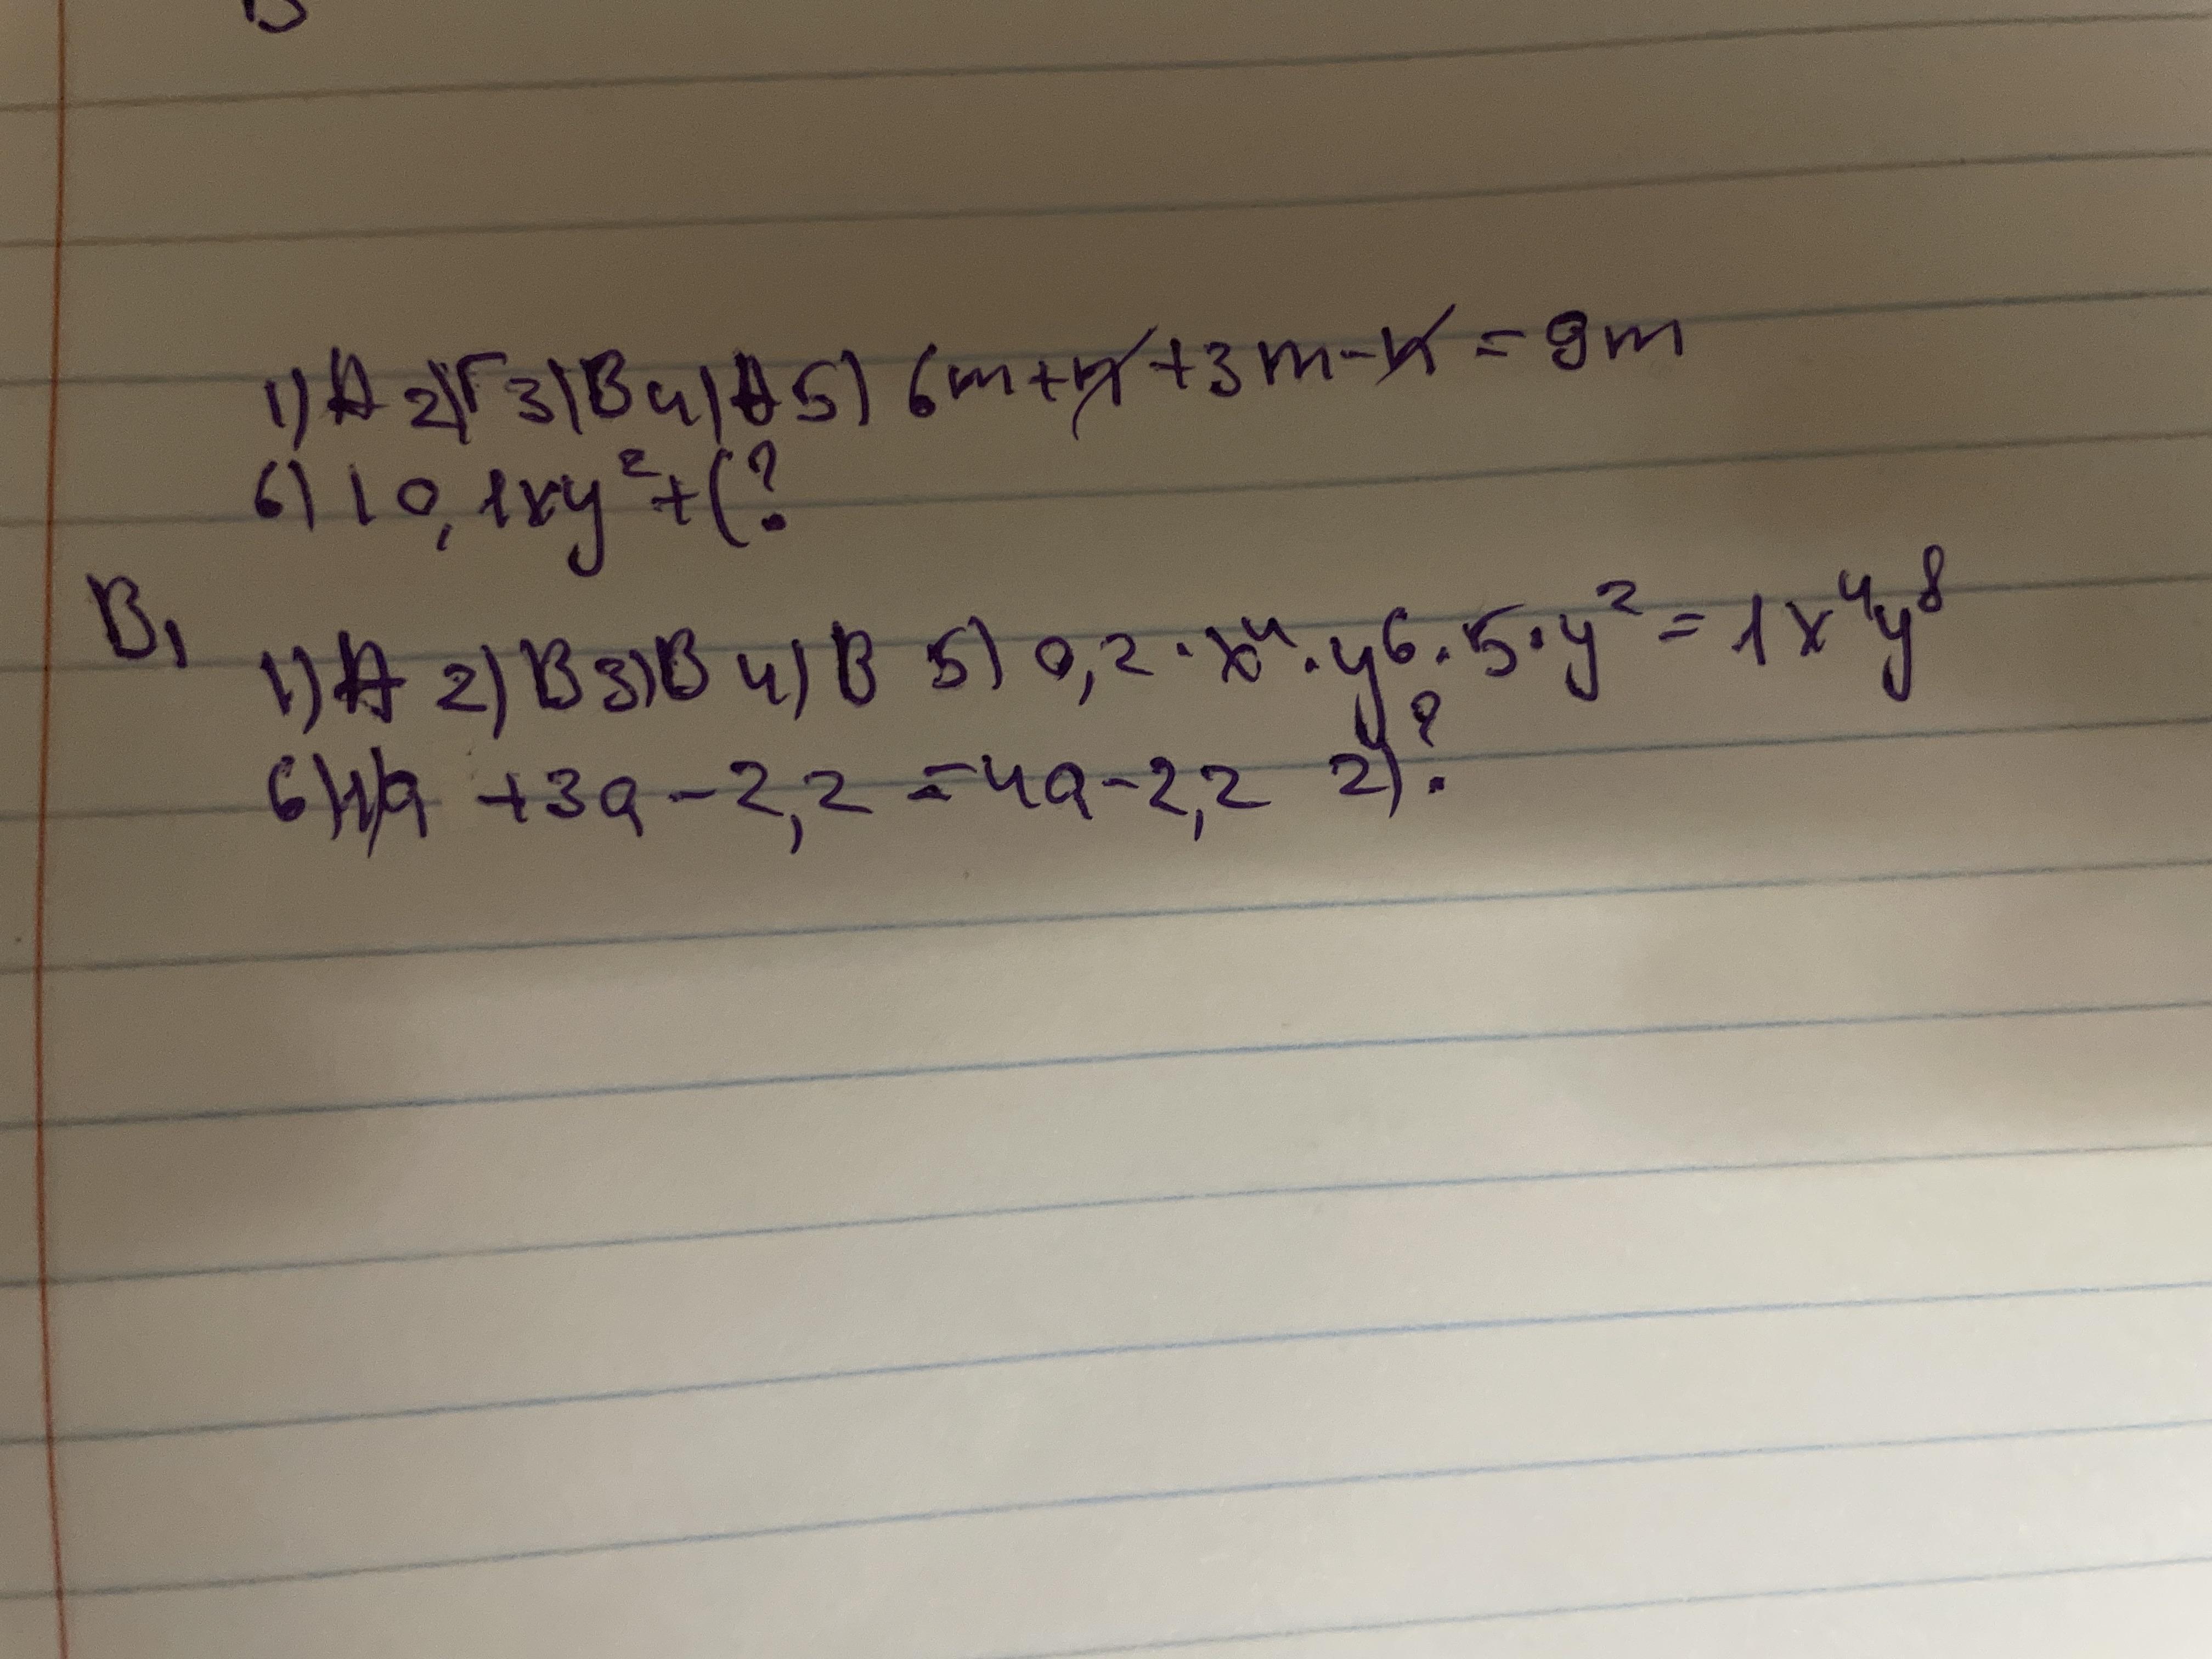 1) А 2) Г 3) В 4) А 5) 6m+n+3m-n=9m
6) 10,1xy²+(?
В₁
1) А 2) В 3) В 4) В 5) 0,2·x⁴·y⁶·5·y²=1x⁴y⁸
6) 1) a +3a-2,2 =4a-2,2 2)?